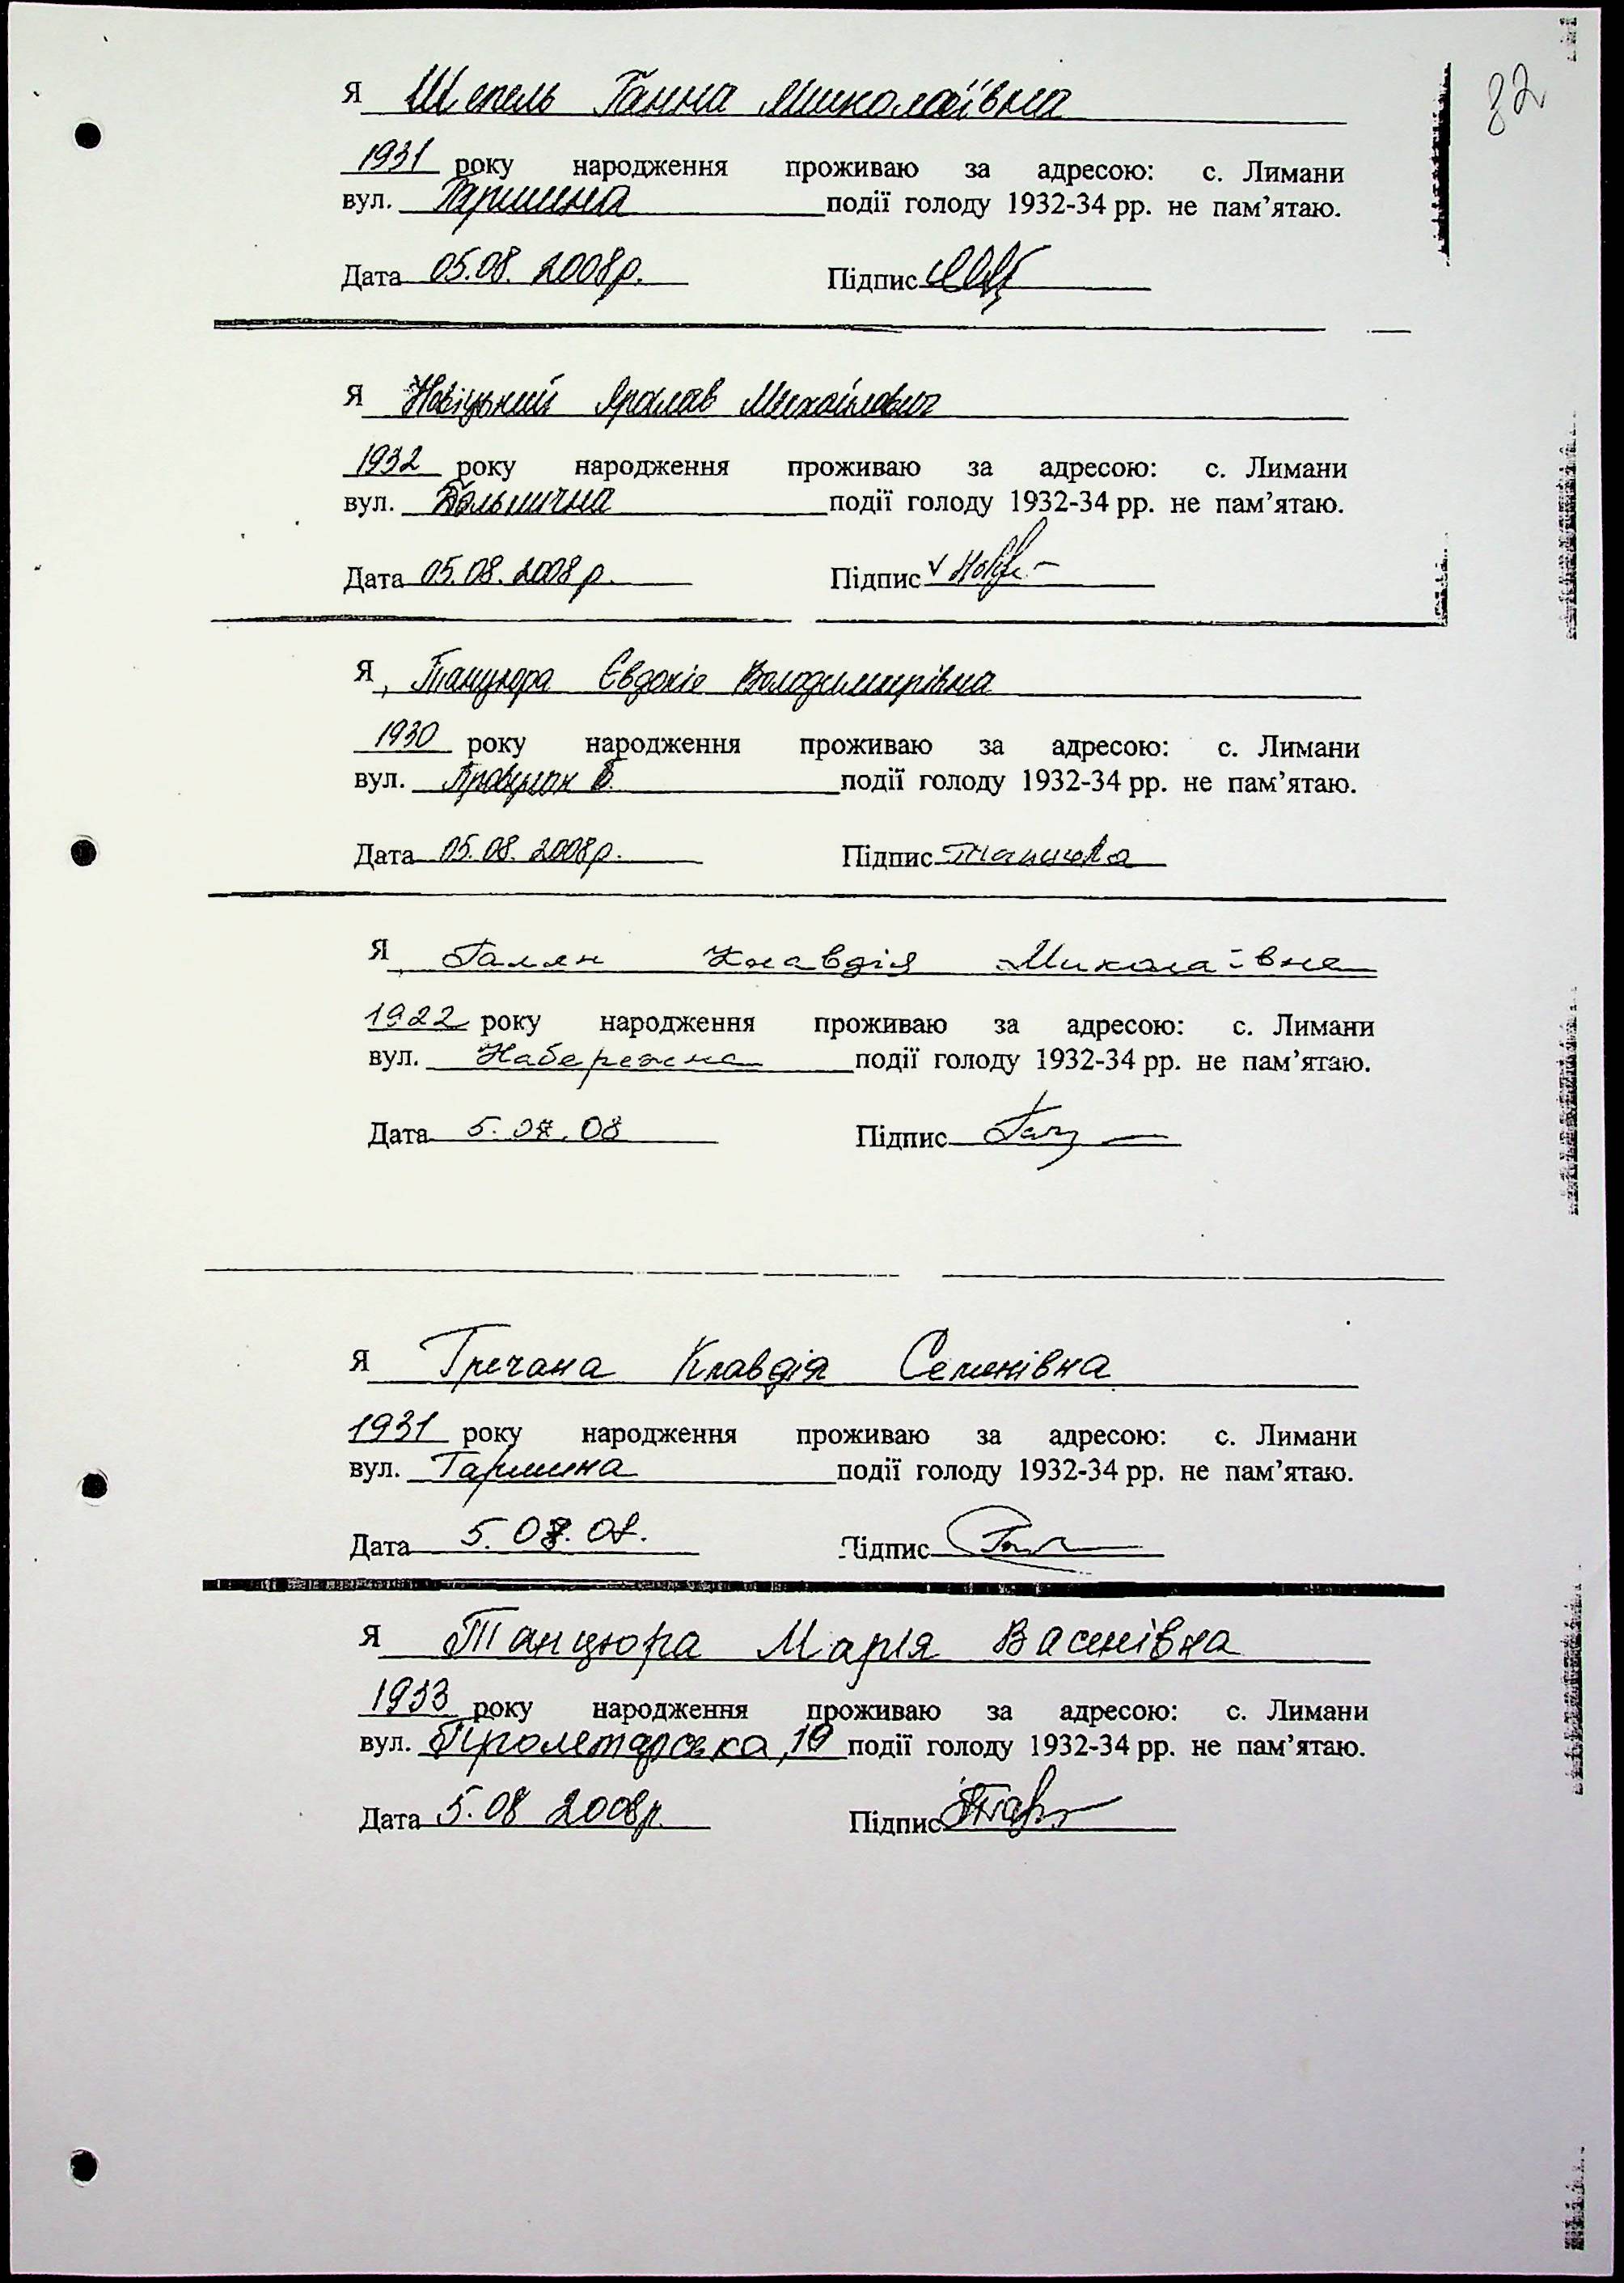 82
Я Шепель Ганна Миколаївна
1931 року народження проживаю за адресою: с. Лимани
вул. Гармина події голоду 1932-34 рр. не пам’ятаю.
Дата 05.08.2008р. Підпис
Я Новіцький Ярослав Михайлович
1932 року народження проживаю за адресою: с. Лимани
вул. події голоду 1932-34 рр. не пам’ятаю.
Дата 05.08.2008р. Підпис
Я, Танцюра Євдокія Володимирівна
1930 року народження проживаю за адресою: с. Лимани
вул. події голоду 1932-34 рр. не пам’ятаю.
Дата 05.08.2008р. Підпис
Я Галян Клавдія Миколаївна
1922 року народження проживаю за адресою: с. Лимани
вул. Набережна події голоду 1932-34 рр. не пам’ятаю.
Дата 5.08.08 Підпис
Я Гречана Клавдія Семенівна
1931 року народження проживаю за адресою: с. Лимани
вул. Гармина події голоду 1932-34 рр. не пам’ятаю.
Дата 5.08.08. Підпис
Я Танцюра Марія Василівна
1933 року народження проживаю за адресою: с. Лимани
вул. Пролетарська, 10 події голоду 1932-34 рр. не пам’ятаю.
Дата 5.08 2008р. Підпис